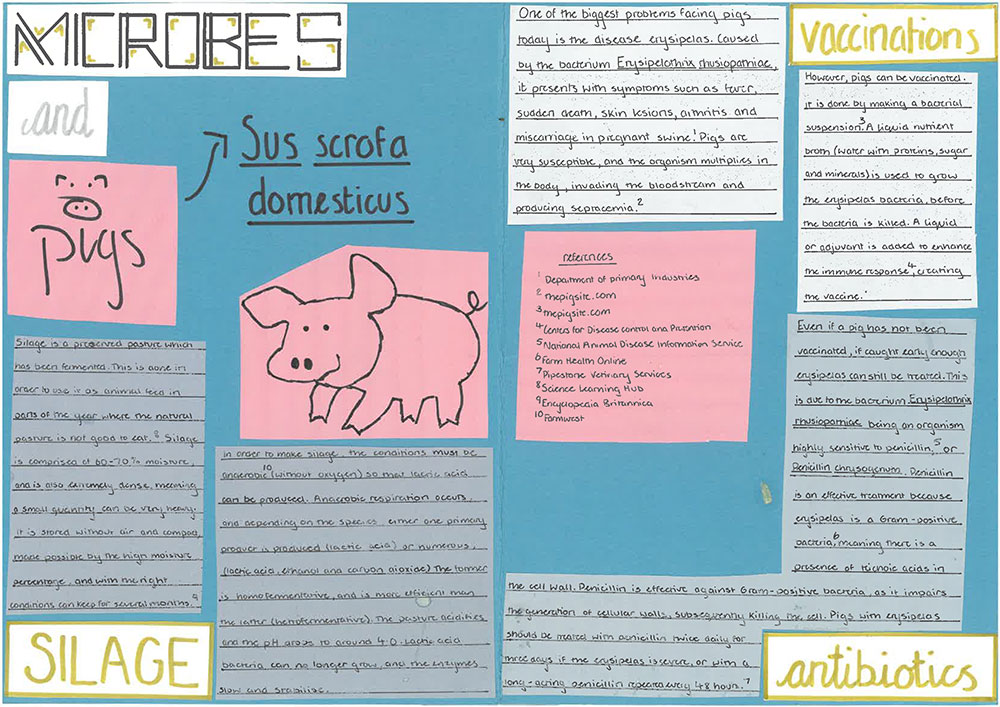 MICROBES
and
pigs
Sus scrofa
domesticus
Silage is a preserved pasture which
has been fermented. This is done in
order to use it as animal feed in
parts of the year where the natural
pasture is not good to eat.⁸ Silage
is comprised of 60-70% moisture,
and is also extremely dense, meaning
a small quantity can be very heavy.
It is stored without air and compact,
made possible by the high moisture
percentage, and with the right
conditions can keep for several months.⁹
SILAGE
In order to make silage, the conditions must be
anaerobic¹⁰ (without oxygen) so that lactic acid
can be produced. Anaerobic respiration occurs,
and depending on the species, either one primary
producer is produced (lactic acid) or numerous,
(lactic acid, ethanol and carbon dioxide) The former
is homofermentative, and is more efficient than
the latter (heterofermentative). The pasture acidifies
and the pH drops to around 4.0. Lactic acid
bacteria can no longer grow, and the enzymes
slow and stabilise.
One of the biggest problems facing pigs
today is the disease erysipelas. Caused
by the bacterium Erysipelothrix rhusiopathiae,
it presents with symptoms such as fever,
sudden death, skin lesions, arthritis and
miscarriage in pregnant swine.¹ Pigs are
very susceptible, and the organism multiplies in
the body, invading the bloodstream and
producing septacemia.²
references
¹ Department of primary Industries
² thepigsite.com
³ thepigsite.com
⁴ Centers for Disease control and Prevention
⁵ National Animal Disease Information Service
⁶ Farm Health Online
⁷ Pipestone Vetirinary Services
⁸ Science Learning Hub
⁹ Encyclopedia Britannica
¹⁰ Farmwest
vaccinations
However, pigs can be vaccinated.
It is done by making a bacterial
suspension.³ A liquid nutrient
broth (water with proteins, sugar
and minerals) is used to grow
the erysipelas bacteria, before
the bacteria is killed. A liquid
or adjuvant is added to enhance
the immune response⁴, creating
the vaccine.
Even if a pig has not been
vaccinated, if caught early enough
erysipelas can still be treated. This
is due to the bacterium Erysipelothrix
rhusiopathiae being an organism
highly sensitive to penicillin,⁵ or
Penicillin chrysogenum. Penicillin
is an effective treatment because
erysipelas is a Gram-positive
bacteria,⁶ meaning there is a
presence of teichoic acids in
the cell wall. Penicillin is effective against Gram-positive bacteria, as it impairs
the generation of cellular walls, subsequently killing the cell. Pigs with erysipelas
should be treated with penicillin twice daily for
three days if the erysipelas is severe, or with a
long-acting penicillin repeated every 48 hours.⁷
antibiotics